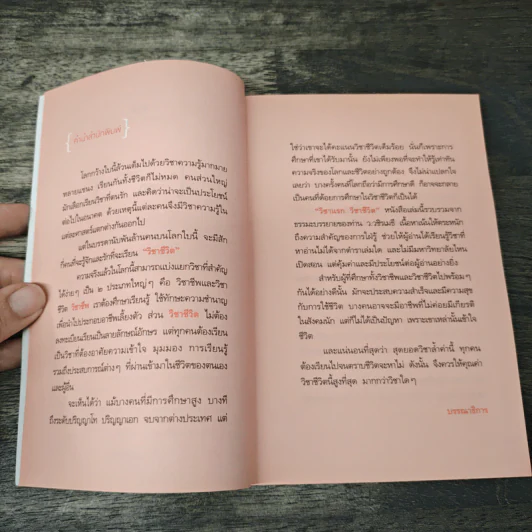 คำนำสำนักพิมพ์
โลกกว้างใบนี้ล้วนเต็มไปด้วยวิชาความรู้มากมาย
หลายแขนง เรียนกันทั้งชีวิตก็ไม่หมด คนส่วนใหญ่
มักเลือกเรียนวิชาที่ตนรัก และคิดว่าน่าจะเป็นประโยชน์
ต่อไปในอนาคต ด้วยเหตุนี้แต่ละคนจึงมีวิชาความรู้ใน
แต่ละศาสตร์แตกต่างกันออกไป
แต่ในบรรดานับพันล้านคนบนโลกใบนี้ จะมีสัก
กี่คนที่จะรู้จักและรักที่จะเรียน "วิชาชีวิต"
ความจริงแล้วในโลกนี้สามารถแบ่งแยกวิชาที่สำคัญ
ได้ง่ายๆ เป็น ๒ ประเภทใหญ่ๆ คือ วิชาชีพและวิชา
ชีวิต วิชาชีพ เราต้องศึกษาเรียนรู้ ใช้ทักษะความชำนาญ
เพื่อนำไปประกอบอาชีพเลี้ยงตัว ส่วน วิชาชีวิต ไม่ต้อง
ลงทะเบียนเรียนเป็นลายลักษณ์อักษร แต่ทุกคนต้องเรียน
เป็นวิชาที่ต้องอาศัยความเข้าใจ มุมมอง การเรียนรู้
รวมถึงประสบการณ์ต่างๆ ที่ผ่านเข้ามาในชีวิตของตนเอง
และผู้อื่น
จะเห็นได้ว่า แม้บางคนที่มีการศึกษาสูง บางที
ถึงระดับปริญญาโท ปริญญาเอก จบจากต่างประเทศ แต่
ใช่ว่าเขาจะได้คะแนนวิชาชีวิตเต็มร้อย นั่นก็เพราะการ
ศึกษาที่เขาได้รับมานั้น ยังไม่เพียงพอที่จะทำให้รู้เท่าทัน
ความจริงของโลกและชีวิตอย่างถูกต้อง จึงไม่น่าแปลกใจ
เลยว่า บางครั้งคนที่โลกถือว่ามีการศึกษาดี ก็อาจจะกลาย
เป็นคนที่ด้อยการศึกษาในวิชาชีวิตก็เป็นได้
"วิชาแรก วิชาชีวิต" หนังสือเล่มนี้รวบรวมจาก
ธรรมะบรรยายของท่าน ว.วชิรเมธี เนื้อหาเน้นให้ตระหนัก
ถึงความสำคัญของการใฝ่รู้ ช่วยให้ผู้อ่านได้เรียนรู้วิชาที่
หาอ่านไม่ได้จากตำราเล่มใด และไม่มีมหาวิทยาลัยไหน
เปิดสอน แต่คุ้มค่าและมีประโยชน์ต่อผู้อ่านอย่างยิ่ง
สำหรับผู้ที่ศึกษาทั้งวิชาชีพและวิชาชีวิตไปพร้อมๆ
กันได้อย่างดีนั้น มักจะประสบความสำเร็จและมีความสุข
กับการใช้ชีวิต บางคนอาจจะมีอาชีพที่ไม่ค่อยมีเกียรติ
ในสังคมนัก แต่ก็ไม่ได้เป็นปัญหา เพราะเขาเหล่านั้นเข้าใจ
ชีวิต
และแน่นอนที่สุดว่า สุดยอดวิชาล้ำค่านี้ ทุกคน
ต้องเรียนไปจนตราบชีวิตจะหาไม่ ดังนั้น จึงควรให้คุณค่า
วิชาชีวิตนี้สูงที่สุด มากกว่าวิชาใดๆ
บรรณาธิการ